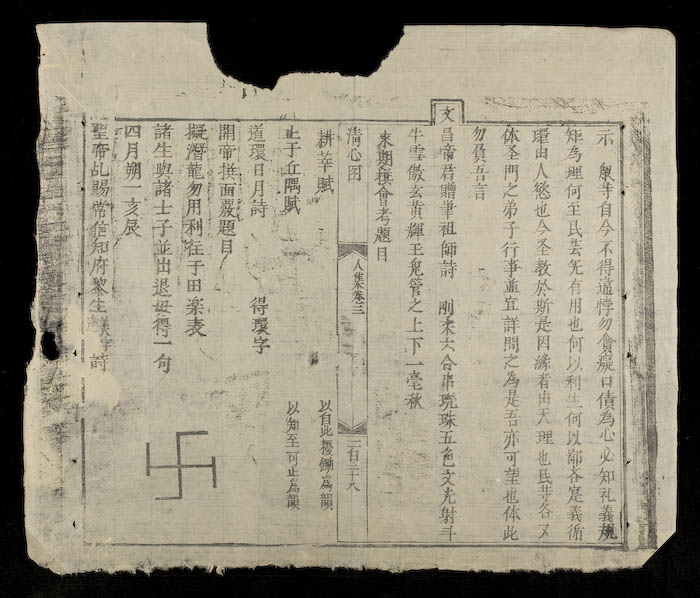 示 眾等自今不得違悖勿貪癡口債為心必知礼義規
矩為理何至民芸无有用也何以利生何以鄰各寔義循
環由人慾也今圣教於斯是因緣者由天理也民等各又
体圣門之弟子行事並宜詳問之為是吾亦可望也体此
勿負吾言
文昌帝君贈筆祖師詩 剛柔大合串琬珠五色文光射斗
牛雲傲玄黄輝玉兔管之上下一毫秋
来期撰會考題目
清心图
人集卷三
二百二十八
耕莘賦 以自此擾鋤為韻
止于丘隅賦 以知至可止為韻
道環日月詩 得環字
開帝拱面覆題目
擬潛龍勿用利往于田楽表
諸生與諸士子並出退毋得一句
四月朔一亥辰
聖帝乩賜常信知府黎生 字詩